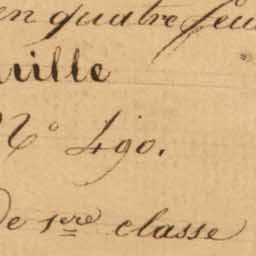 en quatre feu
rille
N° 490.
de 1ere classe